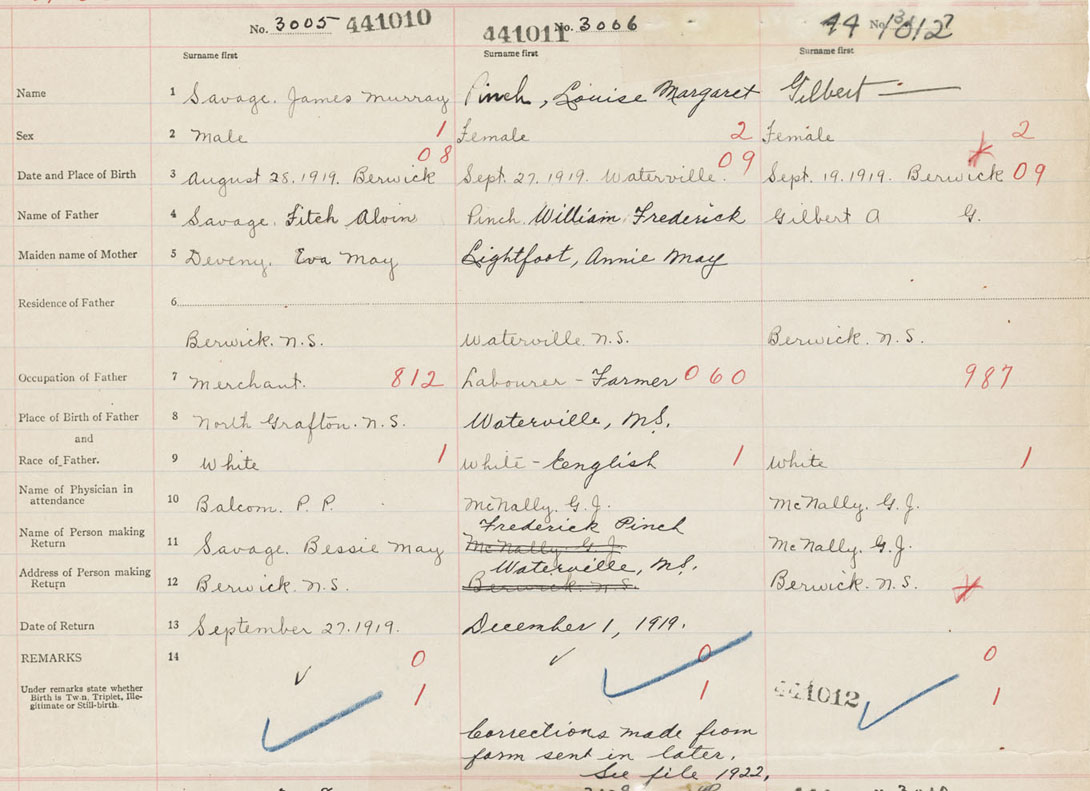 No. 3005 441010 441011 No. 3006 44 No. 1012
Surname first Surname first Surname first
Name 1 Savage. James Murray Pinch, Louise Margaret Gilbert —
Sex 2 Male 1 Female 2 Female 2
08 09
Date and Place of Birth 3 August 28. 1919. Berwick Sept. 27. 1919. Waterville. Sept. 19. 1919. Berwick 09
Name of Father 4 Savage. Fitch Alvin Pinch. William Frederick Gilbert A G.
Maiden name of Mother 5 Deveny. Eva May Lightfoot, Annie May
Residence of Father 6
Berwick. N.S. Waterville. N.S. Berwick. N.S.
Occupation of Father 7 Merchant. 812 Labourer - Farmer 060 987
Place of Birth of Father 8 North Grafton. N.S. Waterville, N.S.
and
Race of Father. 9 White 1 White - English 1 White 1
Name of Physician in
attendance 10 Balcom. P. P. McNally. G. J. McNally. G. J.
Name of Person making Frederick Pinch
Return 11 Savage. Bessie May McNally. G. J. McNally. G. J.
Address of Person making Waterville, N.S.
Return 12 Berwick. N.S. Berwick. N.S. Berwick. N.S.
Date of Return 13 September 27. 1919. December 1, 1919.
REMARKS 14 0 0 0
Under remarks state whether
Birth is Twin, Triplet, Ille-
gitimate or Still-birth. 1 1 441012 1
Corrections made from
form sent in later.
See file 1922.